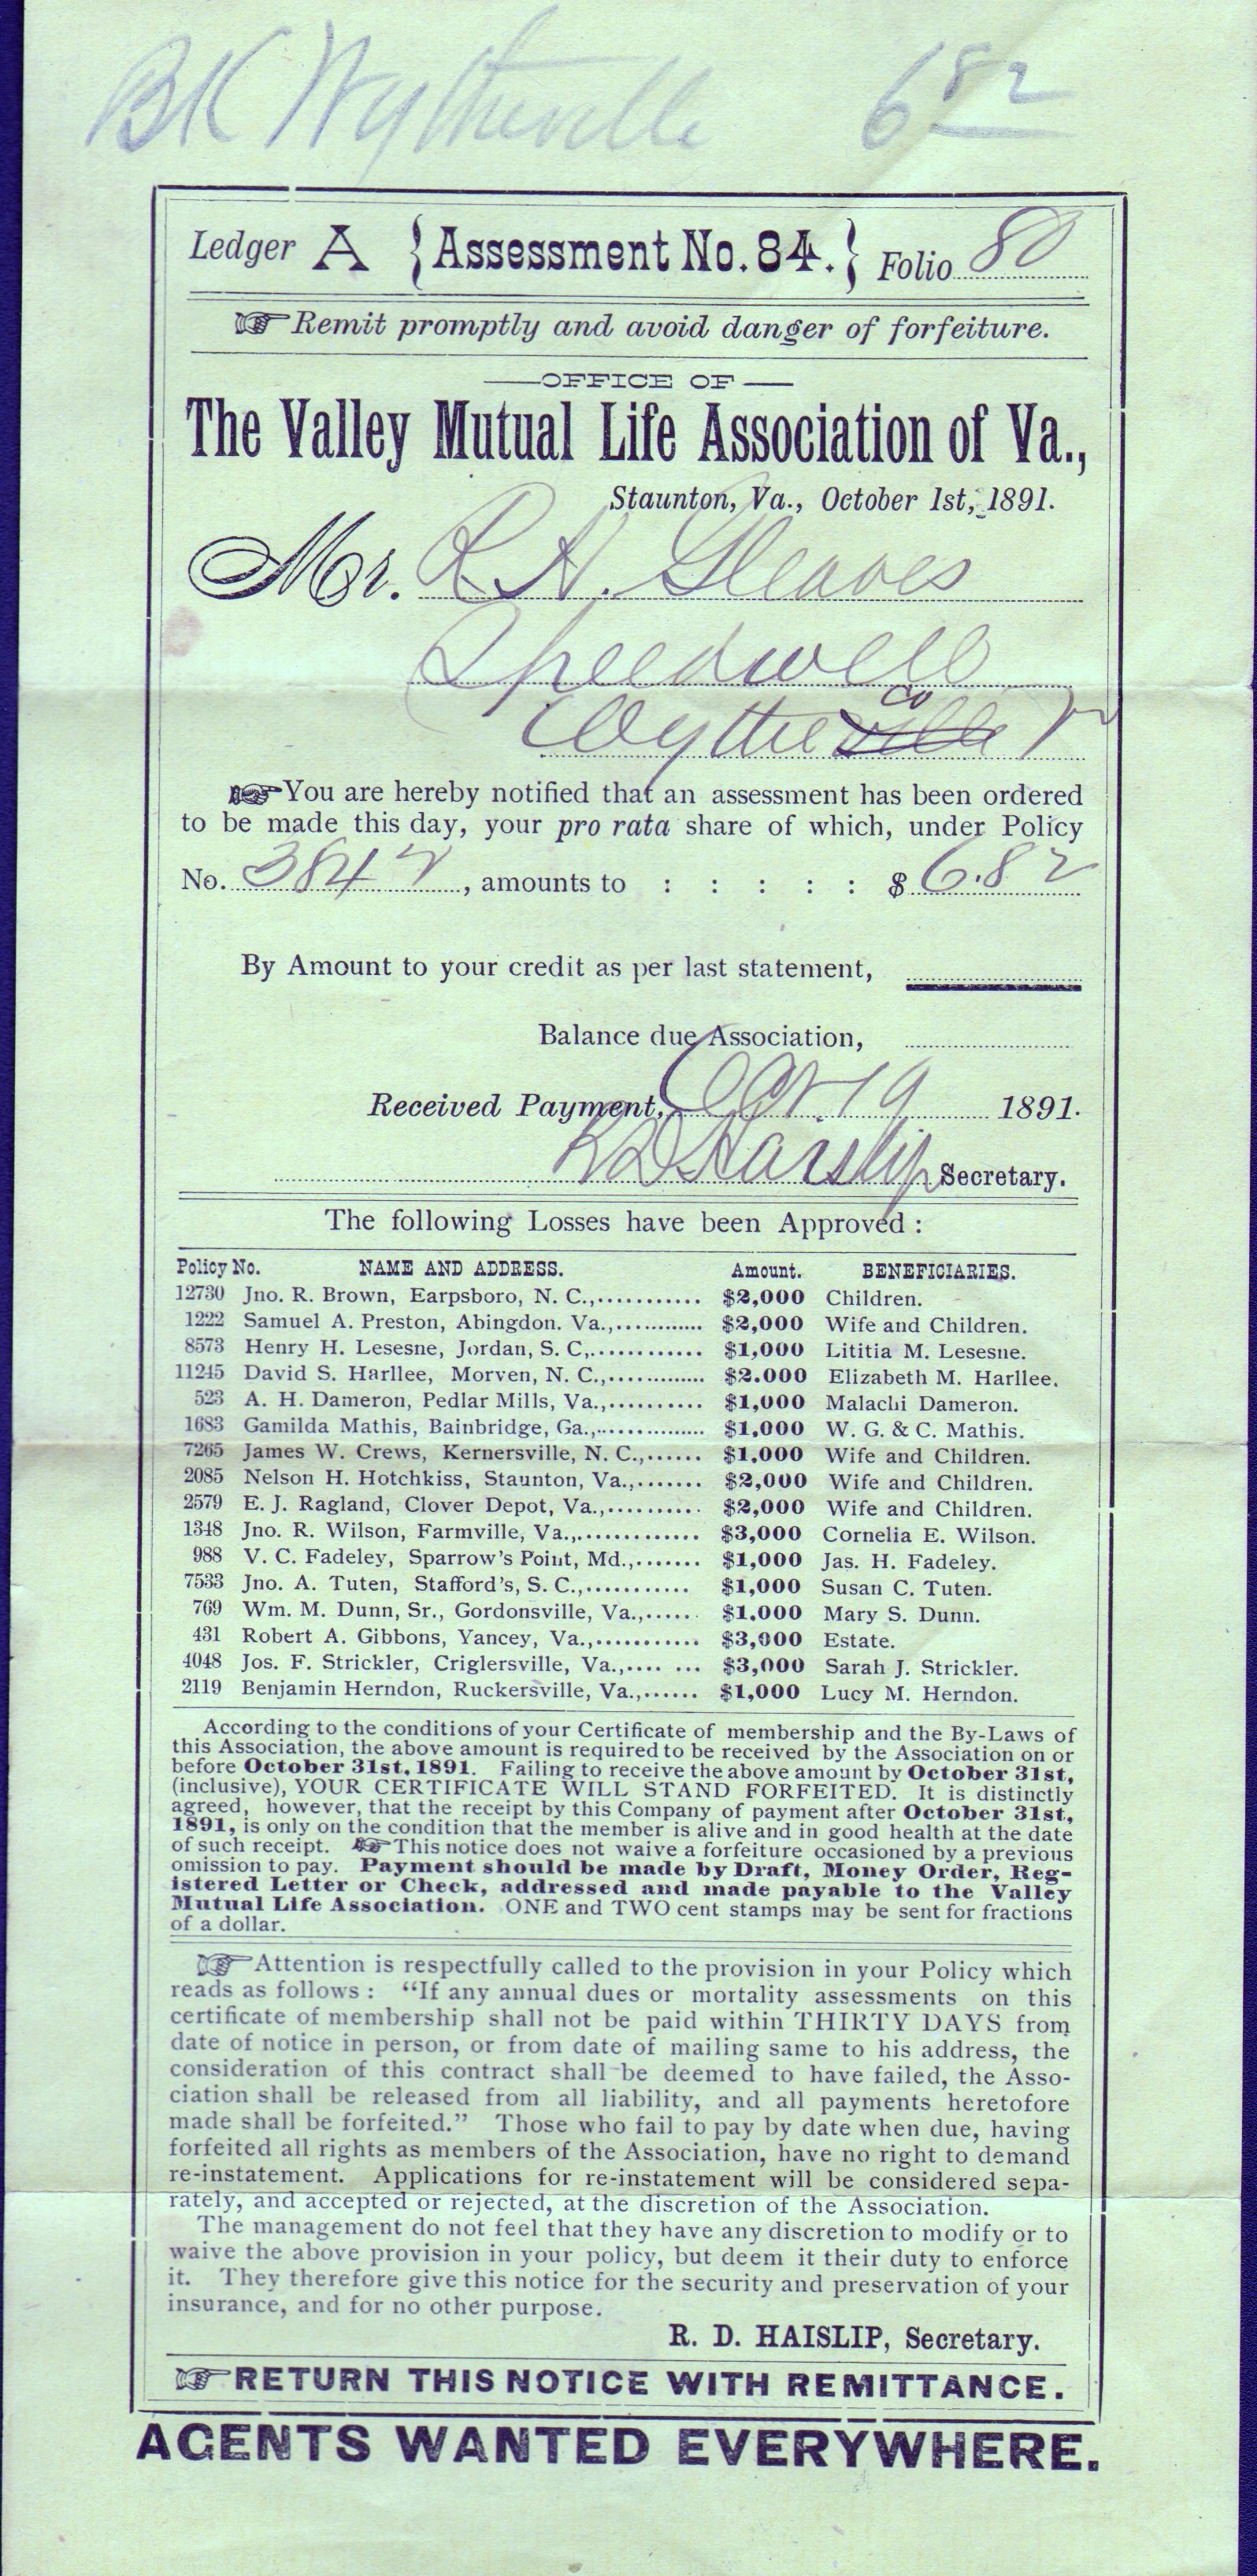 BK Wytheville 6 82
Ledger A { Assessment No. 84. } Folio 80
Remit promptly and avoid danger of forfeiture.
—OFFICE OF—
The Valley Mutual Life Association of Va.,
Staunton, Va., October 1st, 1891.
Mr. R. N. Gleaves
Speedwell
co
Wytheville V
You are hereby notified that an assessment has been ordered
to be made this day, your pro rata share of which, under Policy
No. 3842, amounts to : : : : : $ 6.82
By Amount to your credit as per last statement,
Balance due Association,
Received Payment, Oct. 19 1891.
R D Haislip Secretary.
The following Losses have been Approved :
Policy No. NAME AND ADDRESS. Amount. BENEFICIARIES.
12730 Jno. R. Brown, Earpsboro, N. C.,............ $2,000 Children.
1222 Samuel A. Preston, Abingdon. Va.,............ $2,000 Wife and Children.
8573 Henry H. Lesesne, Jordan, S. C,............. $1,000 Lititia M. Lesesne.
11245 David S. Harllee, Morven, N. C.,............. $2.000 Elizabeth M. Harllee.
523 A. H. Dameron, Pedlar Mills, Va.,.......... $1,000 Malachi Dameron.
1683 Gamilda Mathis, Bainbridge, Ga.,............... $1,000 W. G. & C. Mathis.
7265 James W. Crews, Kernersville, N. C.,...... $1,000 Wife and Children.
2085 Nelson H. Hotchkiss, Staunton, Va.,....... $2,000 Wife and Children.
2579 E. J. Ragland, Clover Depot, Va.,.......... $2,000 Wife and Children.
1348 Jno. R. Wilson, Farmville, Va.,............. $3,000 Cornelia E. Wilson.
988 V. C. Fadeley, Sparrow's Point, Md.,....... $1,000 Jas. H. Fadeley.
7533 Jno. A. Tuten, Stafford's, S. C.,........... $1,000 Susan C. Tuten.
769 Wm. M. Dunn, Sr., Gordonsville, Va.,...... $1,000 Mary S. Dunn.
431 Robert A. Gibbons, Yancey, Va.,........... $3,000 Estate.
4048 Jos. F. Strickler, Criglersville, Va.,.... ... $3,000 Sarah J. Strickler.
2119 Benjamin Herndon, Ruckersville, Va.,...... $1,000 Lucy M. Herndon.
According to the conditions of your Certificate of membership and the By-Laws of
this Association, the above amount is required to be received by the Association on or
before October 31st, 1891. Failing to receive the above amount by October 31st,
(inclusive), YOUR CERTIFICATE WILL STAND FORFEITED. It is distinctly
agreed, however, that the receipt by this Company of payment after October 31st,
1891, is only on the condition that the member is alive and in good health at the date
of such receipt. This notice does not waive a forfeiture occasioned by a previous
omission to pay. Payment should be made by Draft, Money Order, Reg-
istered Letter or Check, addressed and made payable to the Valley
Mutual Life Association. ONE and TWO cent stamps may be sent for fractions
of a dollar.
Attention is respectfully called to the provision in your Policy which
reads as follows : "If any annual dues or mortality assessments on this
certificate of membership shall not be paid within THIRTY DAYS from
date of notice in person, or from date of mailing same to his address, the
consideration of this contract shall be deemed to have failed, the Asso-
ciation shall be released from all liability, and all payments heretofore
made shall be forfeited." Those who fail to pay by date when due, having
forfeited all rights as members of the Association, have no right to demand
re-instatement. Applications for re-instatement will be considered sepa-
rately, and accepted or rejected, at the discretion of the Association.
The management do not feel that they have any discretion to modify or to
waive the above provision in your policy, but deem it their duty to enforce
it. They therefore give this notice for the security and preservation of your
insurance, and for no other purpose.
R. D. HAISLIP, Secretary.
RETURN THIS NOTICE WITH REMITTANCE.
AGENTS WANTED EVERYWHERE.